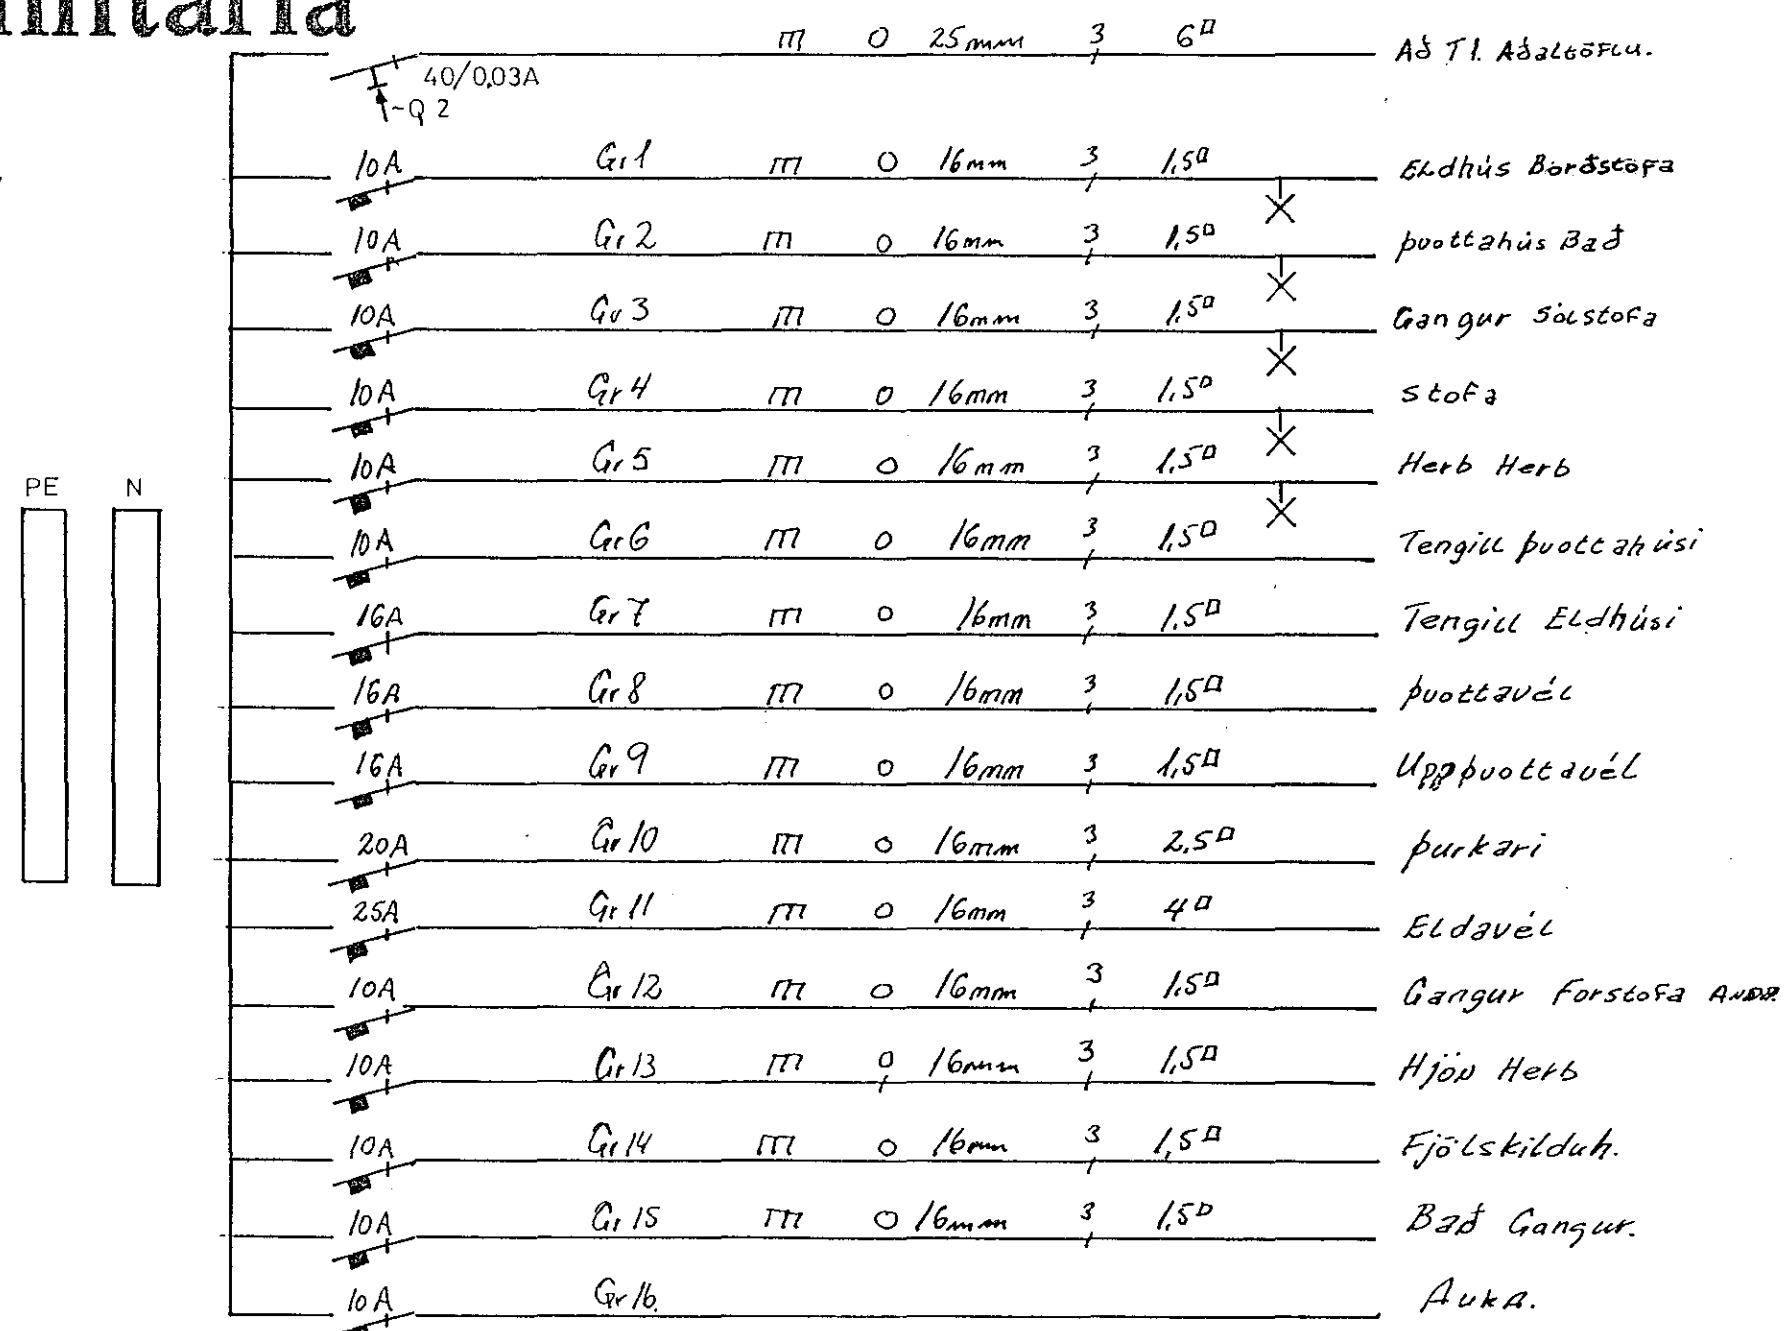 m O 25mm 3 6□ Að T1. Aðaltöflu.
40/0,03A
~Q 2
10A Gr1 m O 16mm 3 1,5□ Eldhús Borðstofa
10A Gr2 m O 16mm 3 1,5□ Þvottahús Bað
10A Gr3 m O 16mm 3 1,5□ Gangur Sólstofa
10A Gr4 m O 16mm 3 1,5□ Stofa
10A Gr5 m O 16mm 3 1,5□ Herb Herb
PE N
10A Gr6 m O 16mm 3 1,5□ Tengill Þvottahúsi
16A Gr7 m O 16mm 3 1,5□ Tengill Eldhúsi
16A Gr8 m O 16mm 3 1,5□ Þvottavél
16A Gr9 m O 16mm 3 1,5□ Uppþvottavél
20A Gr10 m O 16mm 3 2,5□ Þurkari
25A Gr11 m O 16mm 3 4□ Eldavél
10A Gr12 m O 16mm 3 1,5□ Gangur Forstofa
10A Gr13 m O 16mm 3 1,5□ Hjón Herb
10A Gr14 m O 16mm 3 1,5□ Fjölskilduh.
10A Gr15 m O 16mm 3 1,5□ Bað Gangur.
10A Gr16. Auka.